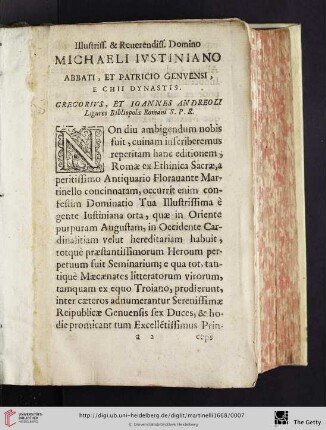 Illustriss. & Reuerendiss. Domino
MICHAELI IVSTINIANO
ABBATI, ET PATRICIO GENVENSI,
E CHII DYNASTIS.
GREGORIVS, ET IOANNES ANDREOLI
Ligures Bibliopolæ Romani S. P. E.
NOn diu ambigendum nobis
fuit, cuinam inscriberemus
repetitam hanc editionem,
Romæ ex Ethnica Sacræ, a
peritissimo Antiquario Florauante Mar-
tinello concinnatam, occurrit enim con-
festim Dominatio Tua Illustrissima è
gente Iustiniana orta, quæ in Oriente
purpuram Augustam, in Occidente Car-
dinalitiam velut hereditariam habuit,
totquè præstantissimorum Heroum per-
petuum fuit Seminarium; e qua tot, tan-
tiquè Mæcenates litteratorum virorum,
tamquam ex equo Troiano, prodierunt,
inter cæteros adnumerantur Serenissimæ
Reipublicæ Genuensis sex Duces, & ho-
die promicant tum Excellẽtissimus Prin-
a 2 ceps
UNIVERSITÄTS-
BIBLIOTHEK
HEIDELBERG
http://digi.ub.uni-heidelberg.de/diglit/martinelli1668/0007
© Universitätsbibliothek Heidelberg
The Getty